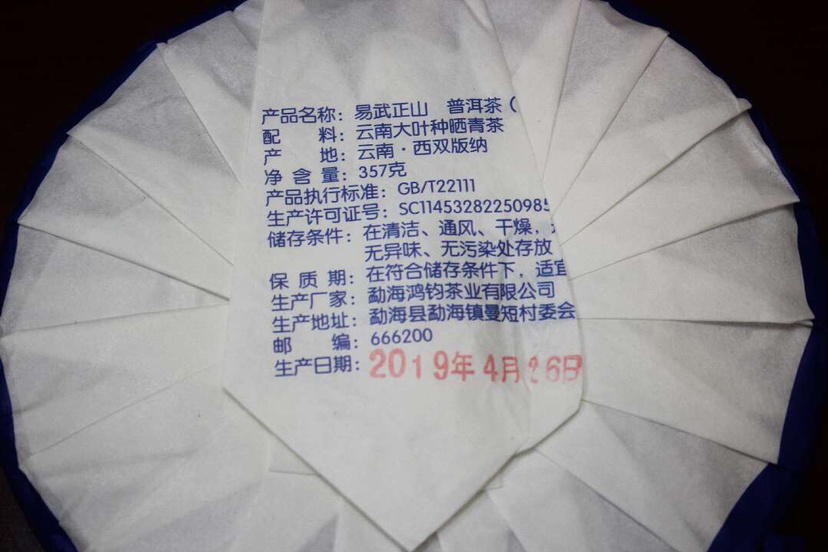 产品名称：易武正山 普洱茶（
配 料：云南大叶种晒青茶
产 地：云南·西双版纳
净 含 量：357克
产品执行标准：GB/T22111
生产许可证号：SC11453282250985
储存条件：在清洁、通风、干燥，
无异味、无污染处存放
保 质 期：在符合储存条件下，适宜
生产厂家：勐海鸿钧茶业有限公司
生产地址：勐海县勐海镇曼短村委会
邮 编：666200
生产日期：2019年4月26日